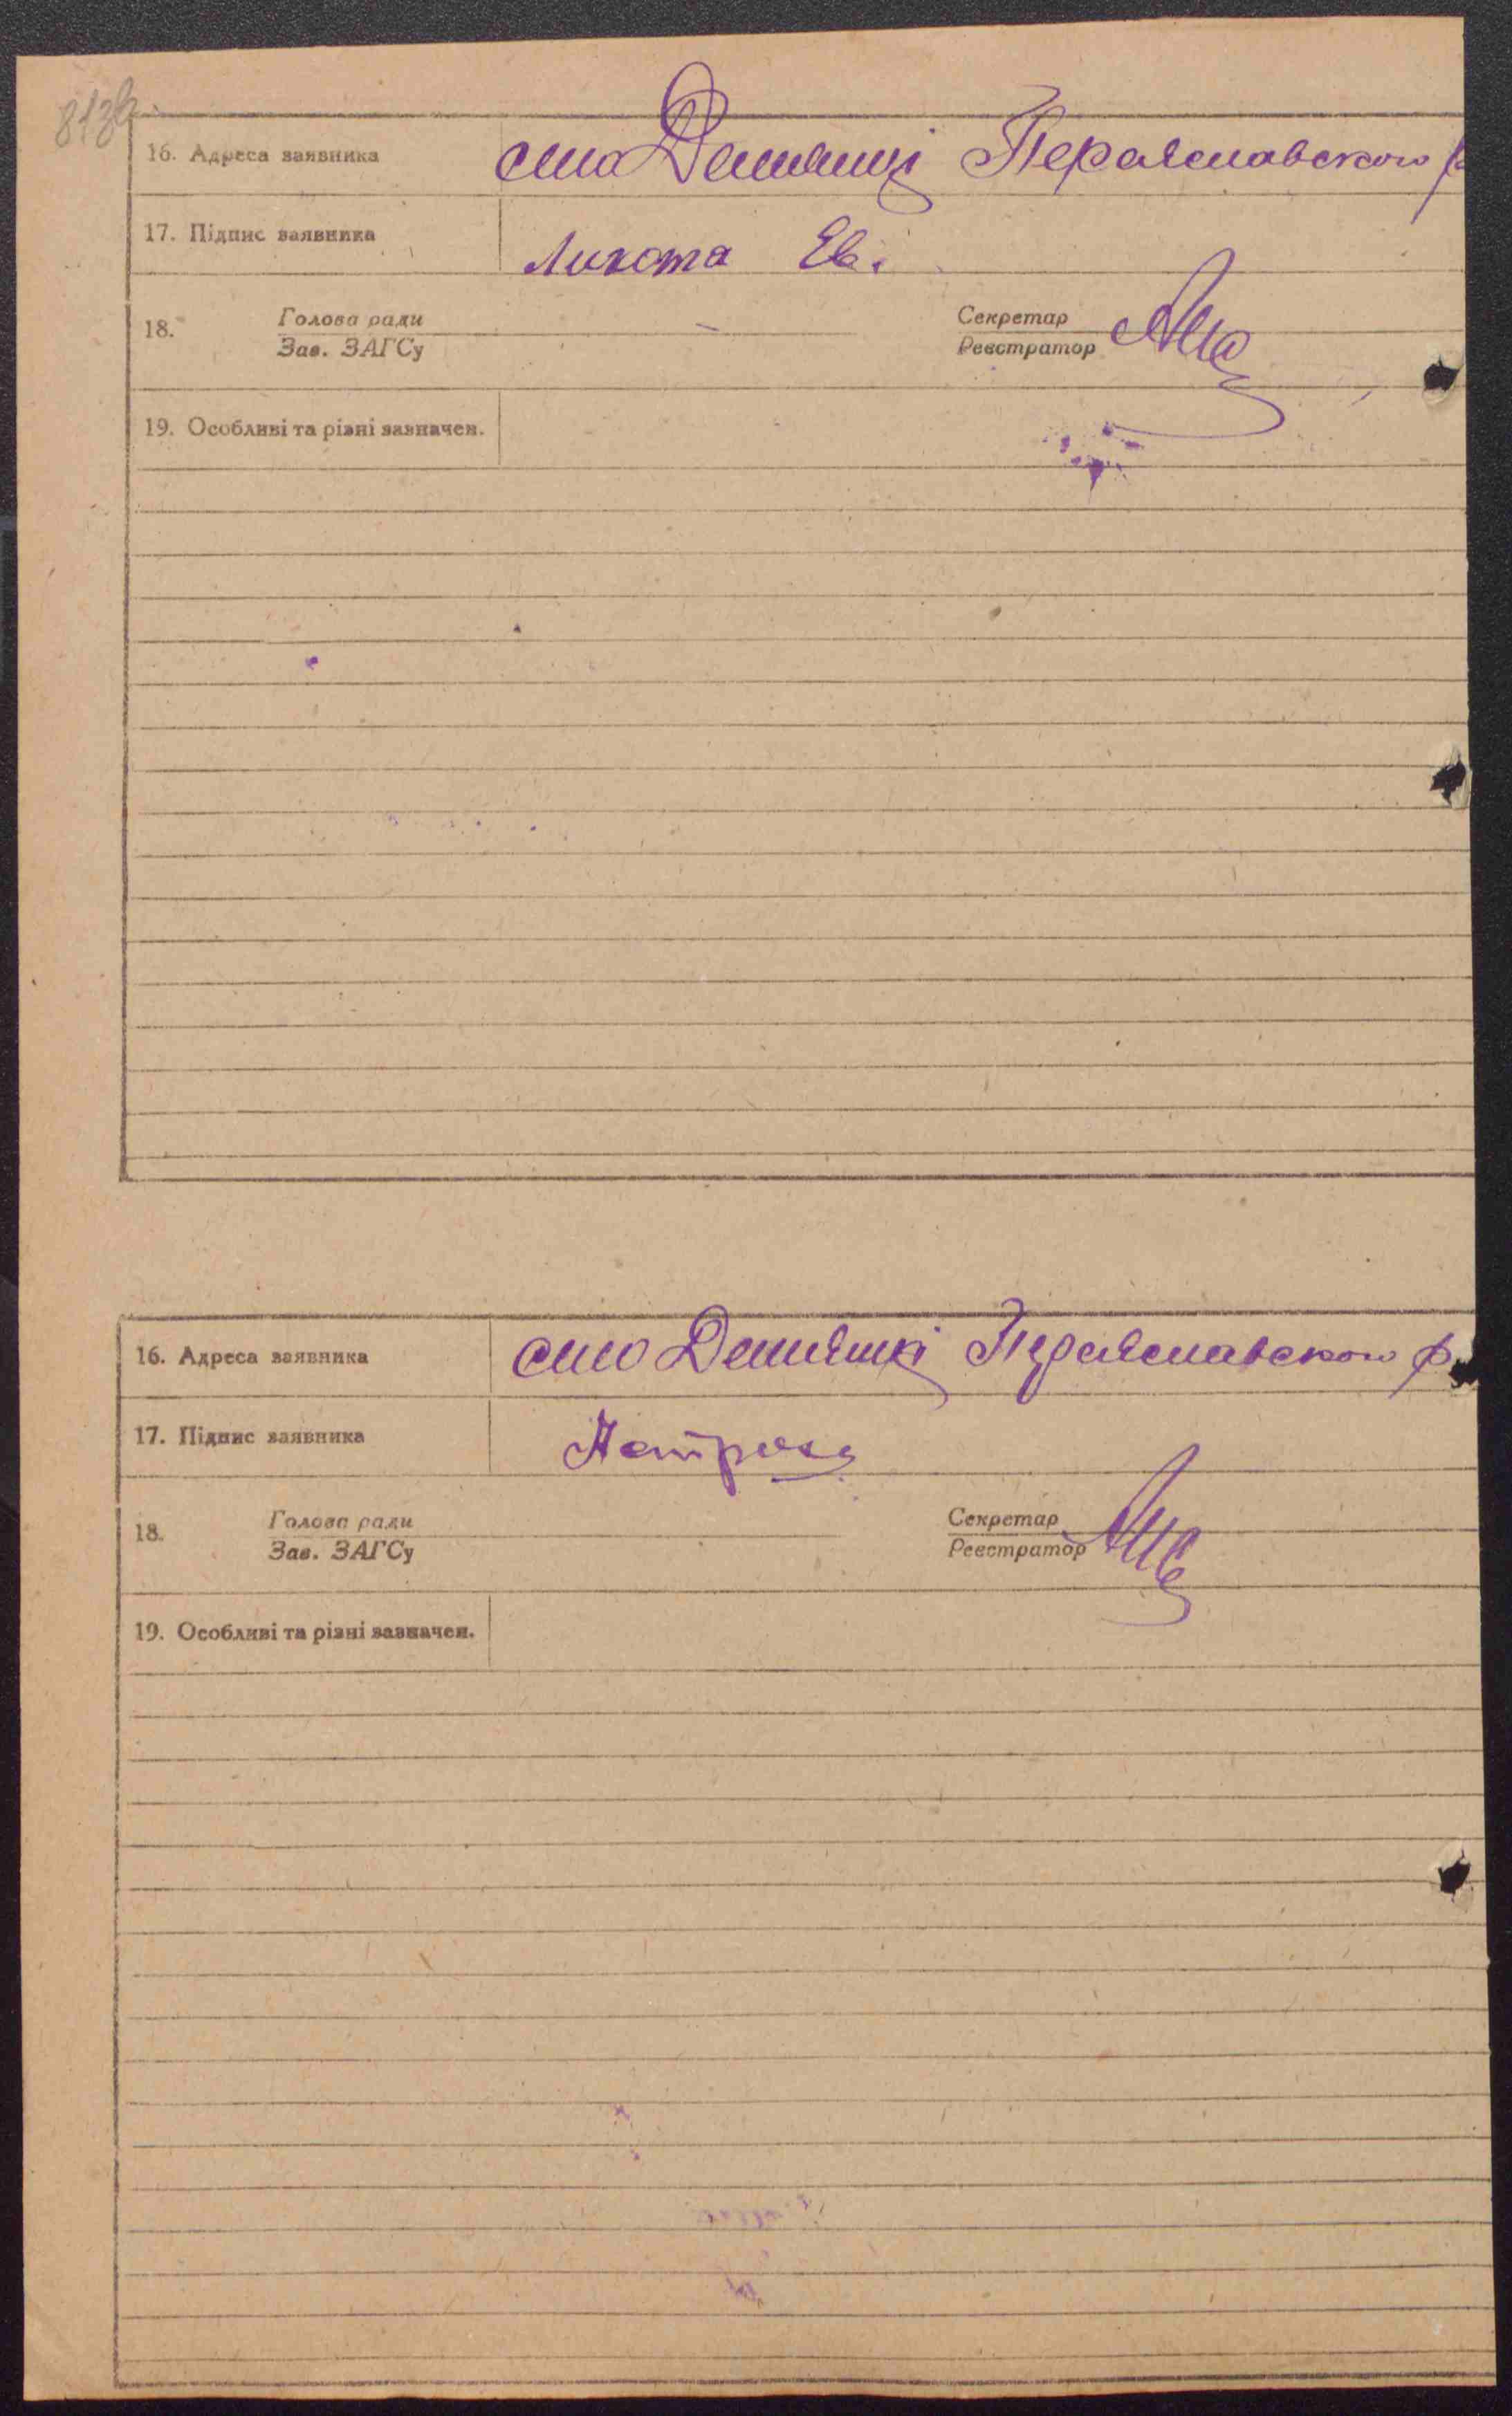 813в.
16. Адреса заявника село Демянці Переяславского р
17. Підпис заявника Лихота Ев.
18. Голова ради Зав. ЗАГСу — Секретар Реєстратор
19. Особливі та різні зазначен.
16. Адреса заявника село Демянці Переяславского р
17. Підпис заявника
18. Голова ради Зав. ЗАГСу Секретар Реєстратор
19. Особливі та різні зазначен.